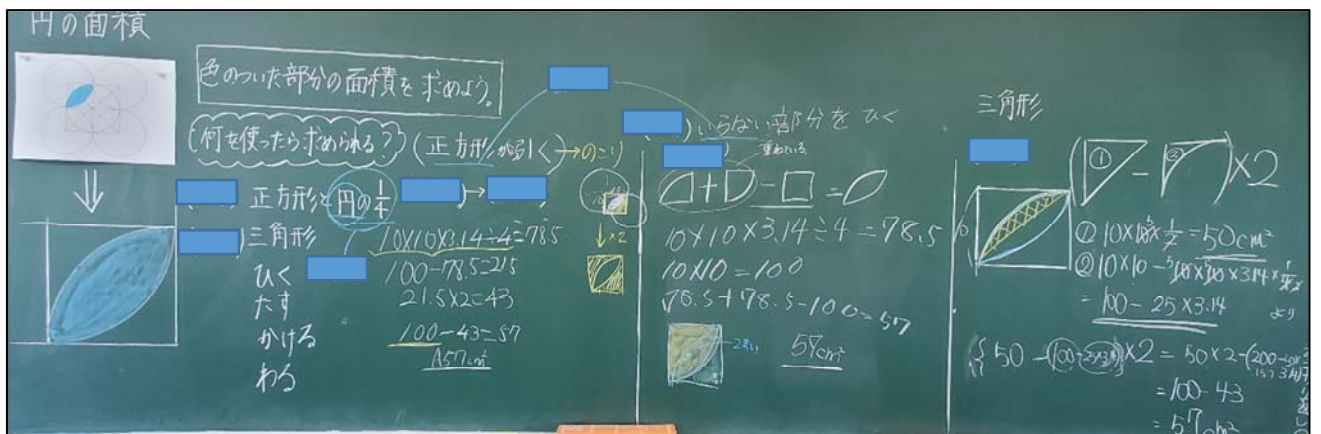 円の面積
色のついた部分の面積を求めよう。
何を使ったら求められる?
(正方形から引く→のこり
正方形と円の1/4
三角形
ひく
たす
かける
わる
10×10×3.14÷4=78.5
100-78.5=21.5
21.5×2=43
100-43=57
A57cm²
×2
いらない部分をひく
重ねている
+ - =
10×10×3.14÷4=78.5
10×10=100
78.5+78.5-100=57
57cm²
三角形
(① - ②)×2
10
① 10×10×1/2=50cm²
②10×10-
×3.14×
=100-25×3.14
より
{50-(100-25×3.14)}×2=50×2-(200-
=100-43
=57cm²